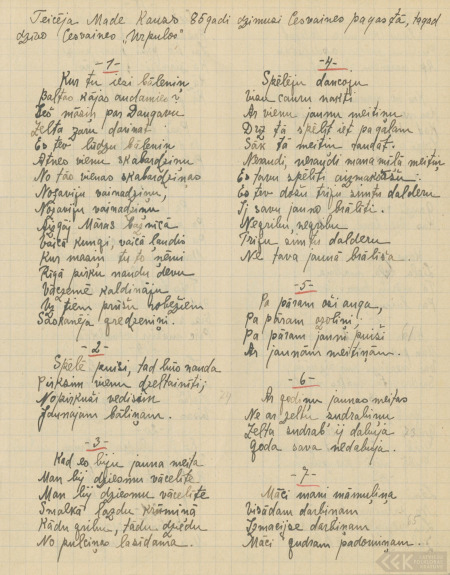 Teicēja Made Kauzas 85 gadi dzimusi Cesvaines pagastā, tagad
dzīvo Cesvaines „Urpulos"
-1-
Kur tu iesi bāleniņ
Baltas kājas audamies?
Ies māsiņ pār Daugavu
Zelta zaru darināt
Es tev lūdzu bāleniņ
Atnes vienu skabardziņu
No tās vienas skabardziņas
Nosaviju vainadziņu,
Nosaviju vainadziņu
Aizgāj Māras baznīcā
Vaicā kungi, vaicā laudis
Kur māsiņ tu to ņēmi
Rīgā pirku naudu devu
Vāczemē kaldināju
Uz ziem prūšu robežiem
Saskanēja gredzeniņi.
-2-
Spēlē puiši, tad būs nauda
Pirksim vienu dzeltainīti;
Nopirkuši vedīsim
Jaunajam bāliņam.
-3-
Kad es biju jauna meita
Man bij dziesmu vācelīte
Man bij dziesmu vācelīte
Smalkā lazdu krūmiņā
Kādu gribu, tādu dziedu
No pulciņas lasīdama.
-4-
Spēlēju dancoju
Visu cauru nakti
Ar vienu jaunu meitiņu
Drīz tā spēlīt iet pagalam
Sāk tā meitiņ raudāt.
Neraudi, neraudi mana mīļā meitiņ
Es tavu spēlīti aizmaksāšu
Es tev došu trīsu simtu dālderu
Ij savu jauno brālīti.
Negribu, negribu
Trīsu simtu dālderu
Ne tava jaunā brālīša.
-5-
Pa pāram oši auga,
Pa pāram ozoliņi,
Pa pāram jauni puiši
Ar jaunām meitiņām.
-6-
Ar godiņu jaunas meitas
Ne ar zeltu sudrabiņu
Zelta sudrab' ij dabūja
Goda sava nedabūja.
-7-
Māci mani māmuliņa
Visādam darbiņam
Izmācījse darbiņam
Māci gudram padomiņam.